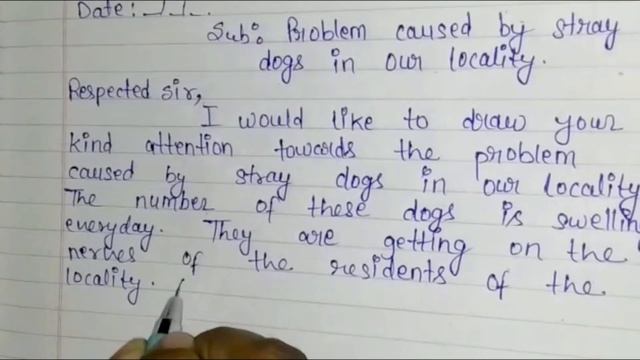 Date: __/__/__.
Sub: Problem caused by stray
dogs in our locality.
Respected Sir,
I would like to draw your
kind attention towards the problem
caused by stray dogs in our locality
The number of these dogs is swellin
everyday. They are getting on the
nerves of the residents of the
locality.